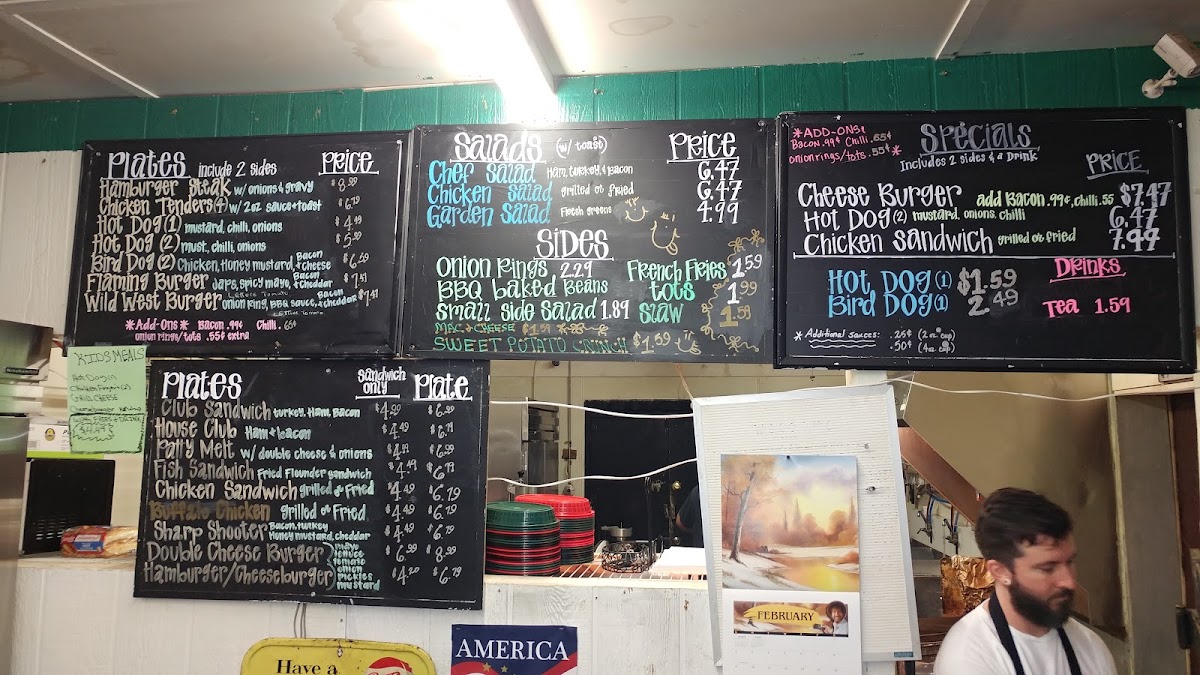 Plates include 2 sides PRICE
Hamburger Steak w/ onions & gravy $8.99
Chicken Tenders (4) w/ 2oz sauce + toast $6.79
Hot Dog (1) mustard, chilli, onions $4.49
Hot Dog (2) must., chilli, onions $5.99
Bird Dog (2) Chicken, Honey mustard, Bacon + cheese $6.59
Flaming Burger Japs, spicy mayo, Bacon + cheddar $7.47
Lettuce Tomato
Wild West Burger onion ring, BBQ sauce, Bacon + cheddar $7.47
Lettuce Tomato
*Add-Ons* Bacon .99¢ Chilli .65¢
onion rings/tots .55¢ extra
Salads (w/ toast) PRICE
Chef Salad Ham, turkey, & Bacon 6.47
Chicken Salad grilled or fried 6.47
Garden Salad Fresh greens 4.99
SIDES
Onion Rings 2.29
BBQ baked Beans
Small side Salad 1.89
MAC + CHEESE $1.59
SWEET POTATO CRUNCH $1.69
French Fries 1.59
tots 1.99
Slaw 1.59
*ADD-ONS:
Bacon .99¢ Chilli .65¢
onion rings/tots .55¢*
SPECIALS
Includes 2 sides & a Drink
PRICE
Cheese Burger add Bacon .99¢, chilli .55 $7.47
Hot Dog (2) mustard, onions, chilli 6.47
Chicken Sandwich grilled or fried 7.99
Hot Dog (1) $1.59
Bird Dog (1) 2.49
Drinks
Tea 1.59
*Additional sauces: .25¢ (2 oz cup)
.50¢ (4oz cup)
KIDS MEALS
Hot Dog
Chicken Fingers (2)
Grill Cheese
Plates Sandwich only Plate
Club Sandwich turkey, Ham, Bacon $4.99 $6.99
House Club Ham + bacon $4.49 $6.79
Patty Melt w/ double cheese & onions $4.19 $6.99
Fish Sandwich Fried Flounder sandwich $4.49 $6.79
Chicken Sandwich grilled or Fried $4.49 $6.79
Buffalo Chicken grilled or Fried $4.49 $6.79
Sharp Shooter Bacon, turkey Honey mustard, cheddar $4.49 $6.79
Double Cheese Burger $6.99 $8.99
Hamburger/Cheeseburger $4.20 $6.79
mayo
lettuce
tomato
onion
pickles
mustard
FEBRUARY
Have a
AMERICA